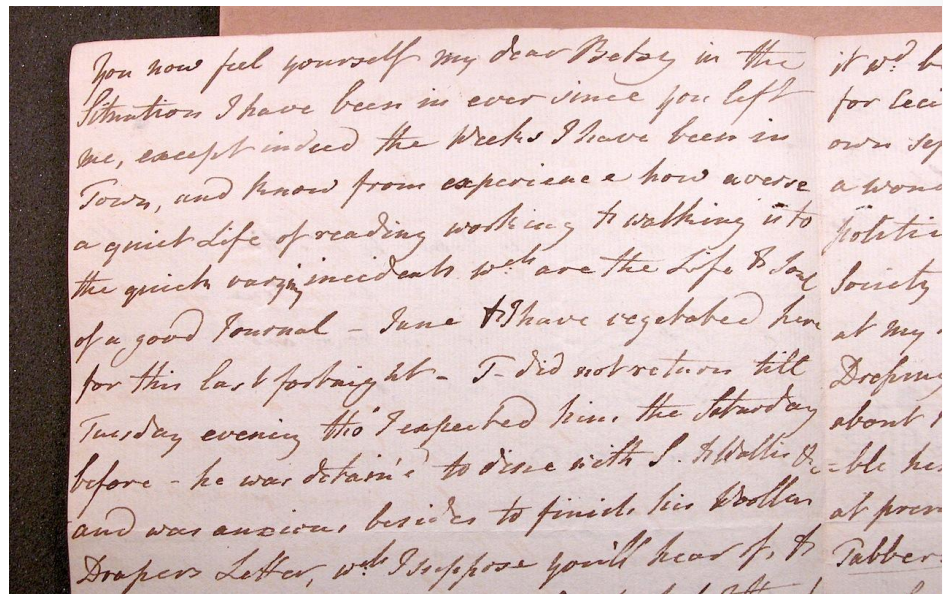 You now feel yourself my dear Betsy in the
Situation I have been in ever since you left
me, except indeed the Weeks I have been in
Town, and know from experience how averse
a quiet Life of reading working & walking is to
the quick varying incidents wch are the Life & Soul
of a good Journal - Jane & I have vegetated here
for this last fortnight - T- did not return till
Tuesday evening tho' I expected him the Saturday
before - he was detain'd to dine with S. & Wallis &c
and was anxious besides to finish his Woollen
Drapers Letter, wch I suppose you'll hear of, &
it wd b
for
own
a won
Politi
Society
at my
about
-ble he
at pres
Tabber